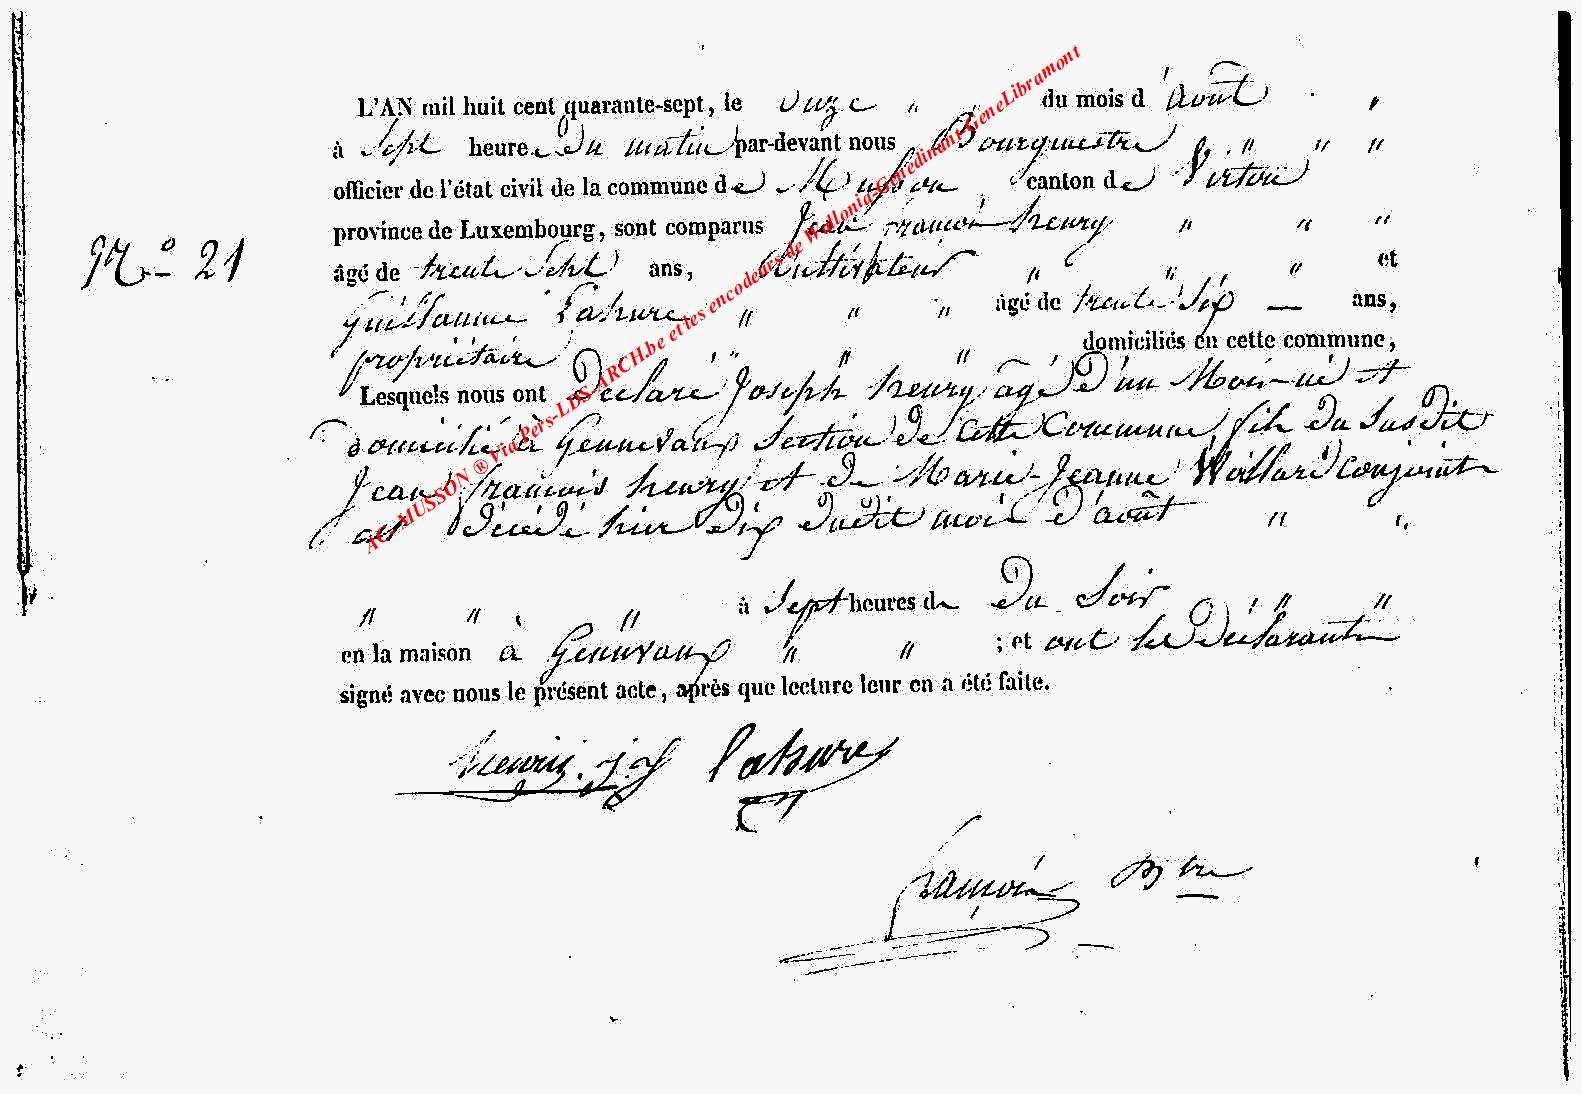 L'AN mil huit cent quarante-sept, le onze " " du mois d'août "
à sept heures du matin par-devant nous Bourgmestre " " "
officier de l'état civil de la commune de Musson canton de Virton
province de Luxembourg, sont comparus Jean françois henry " " "
N.o 21
âgé de trente sept ans, Cultivateur " " " et
Guillaume Lahure " " " âgé de trente six — ans,
propriétaire " " " domiciliés en cette commune,
Lesquels nous ont Déclaré Joseph henry âgé D'un Mois né et
domicilié à Gennevaux Section de cette Commune fils du Susdit
Jean françois henry et de Marie-Jeanne Waillard conjoints
est décédé hier dix dudit mois d'août " "
" " " à sept heures de Du Soir " "
en la maison à Gennevaux " " ; et ont les Déclarants
signé avec nous le présent acte, après que lecture leur en a été faite.
henry. j f lahure
françois Bgtre
AC MUSSON ® Via Pers-LDS-ARCH.be et les encodeurs de Wallonia-Genedinant-GeneLibramont